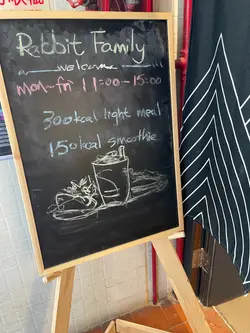 Rabbit Family
welcome
mon~fri 11:00-15:00
300kcal light meal
150kcal smoothie